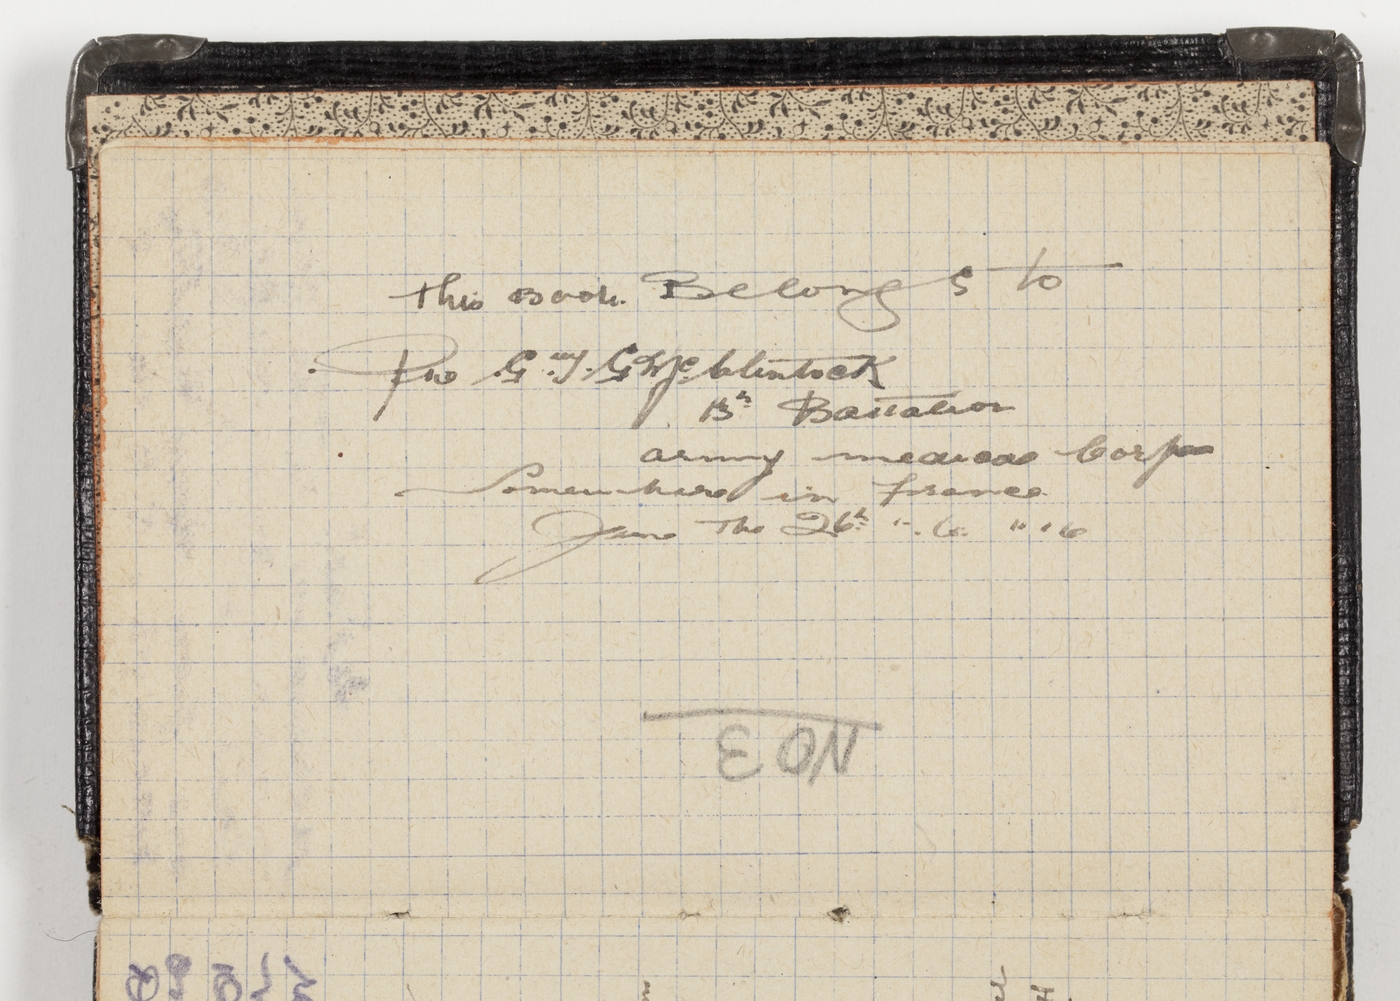 This Book Belongs to
Pve Guy. G McClintock
13th Battalion
army medical Corps
Somewhere in France
June The 26th " . 6. " " 16
NO 3